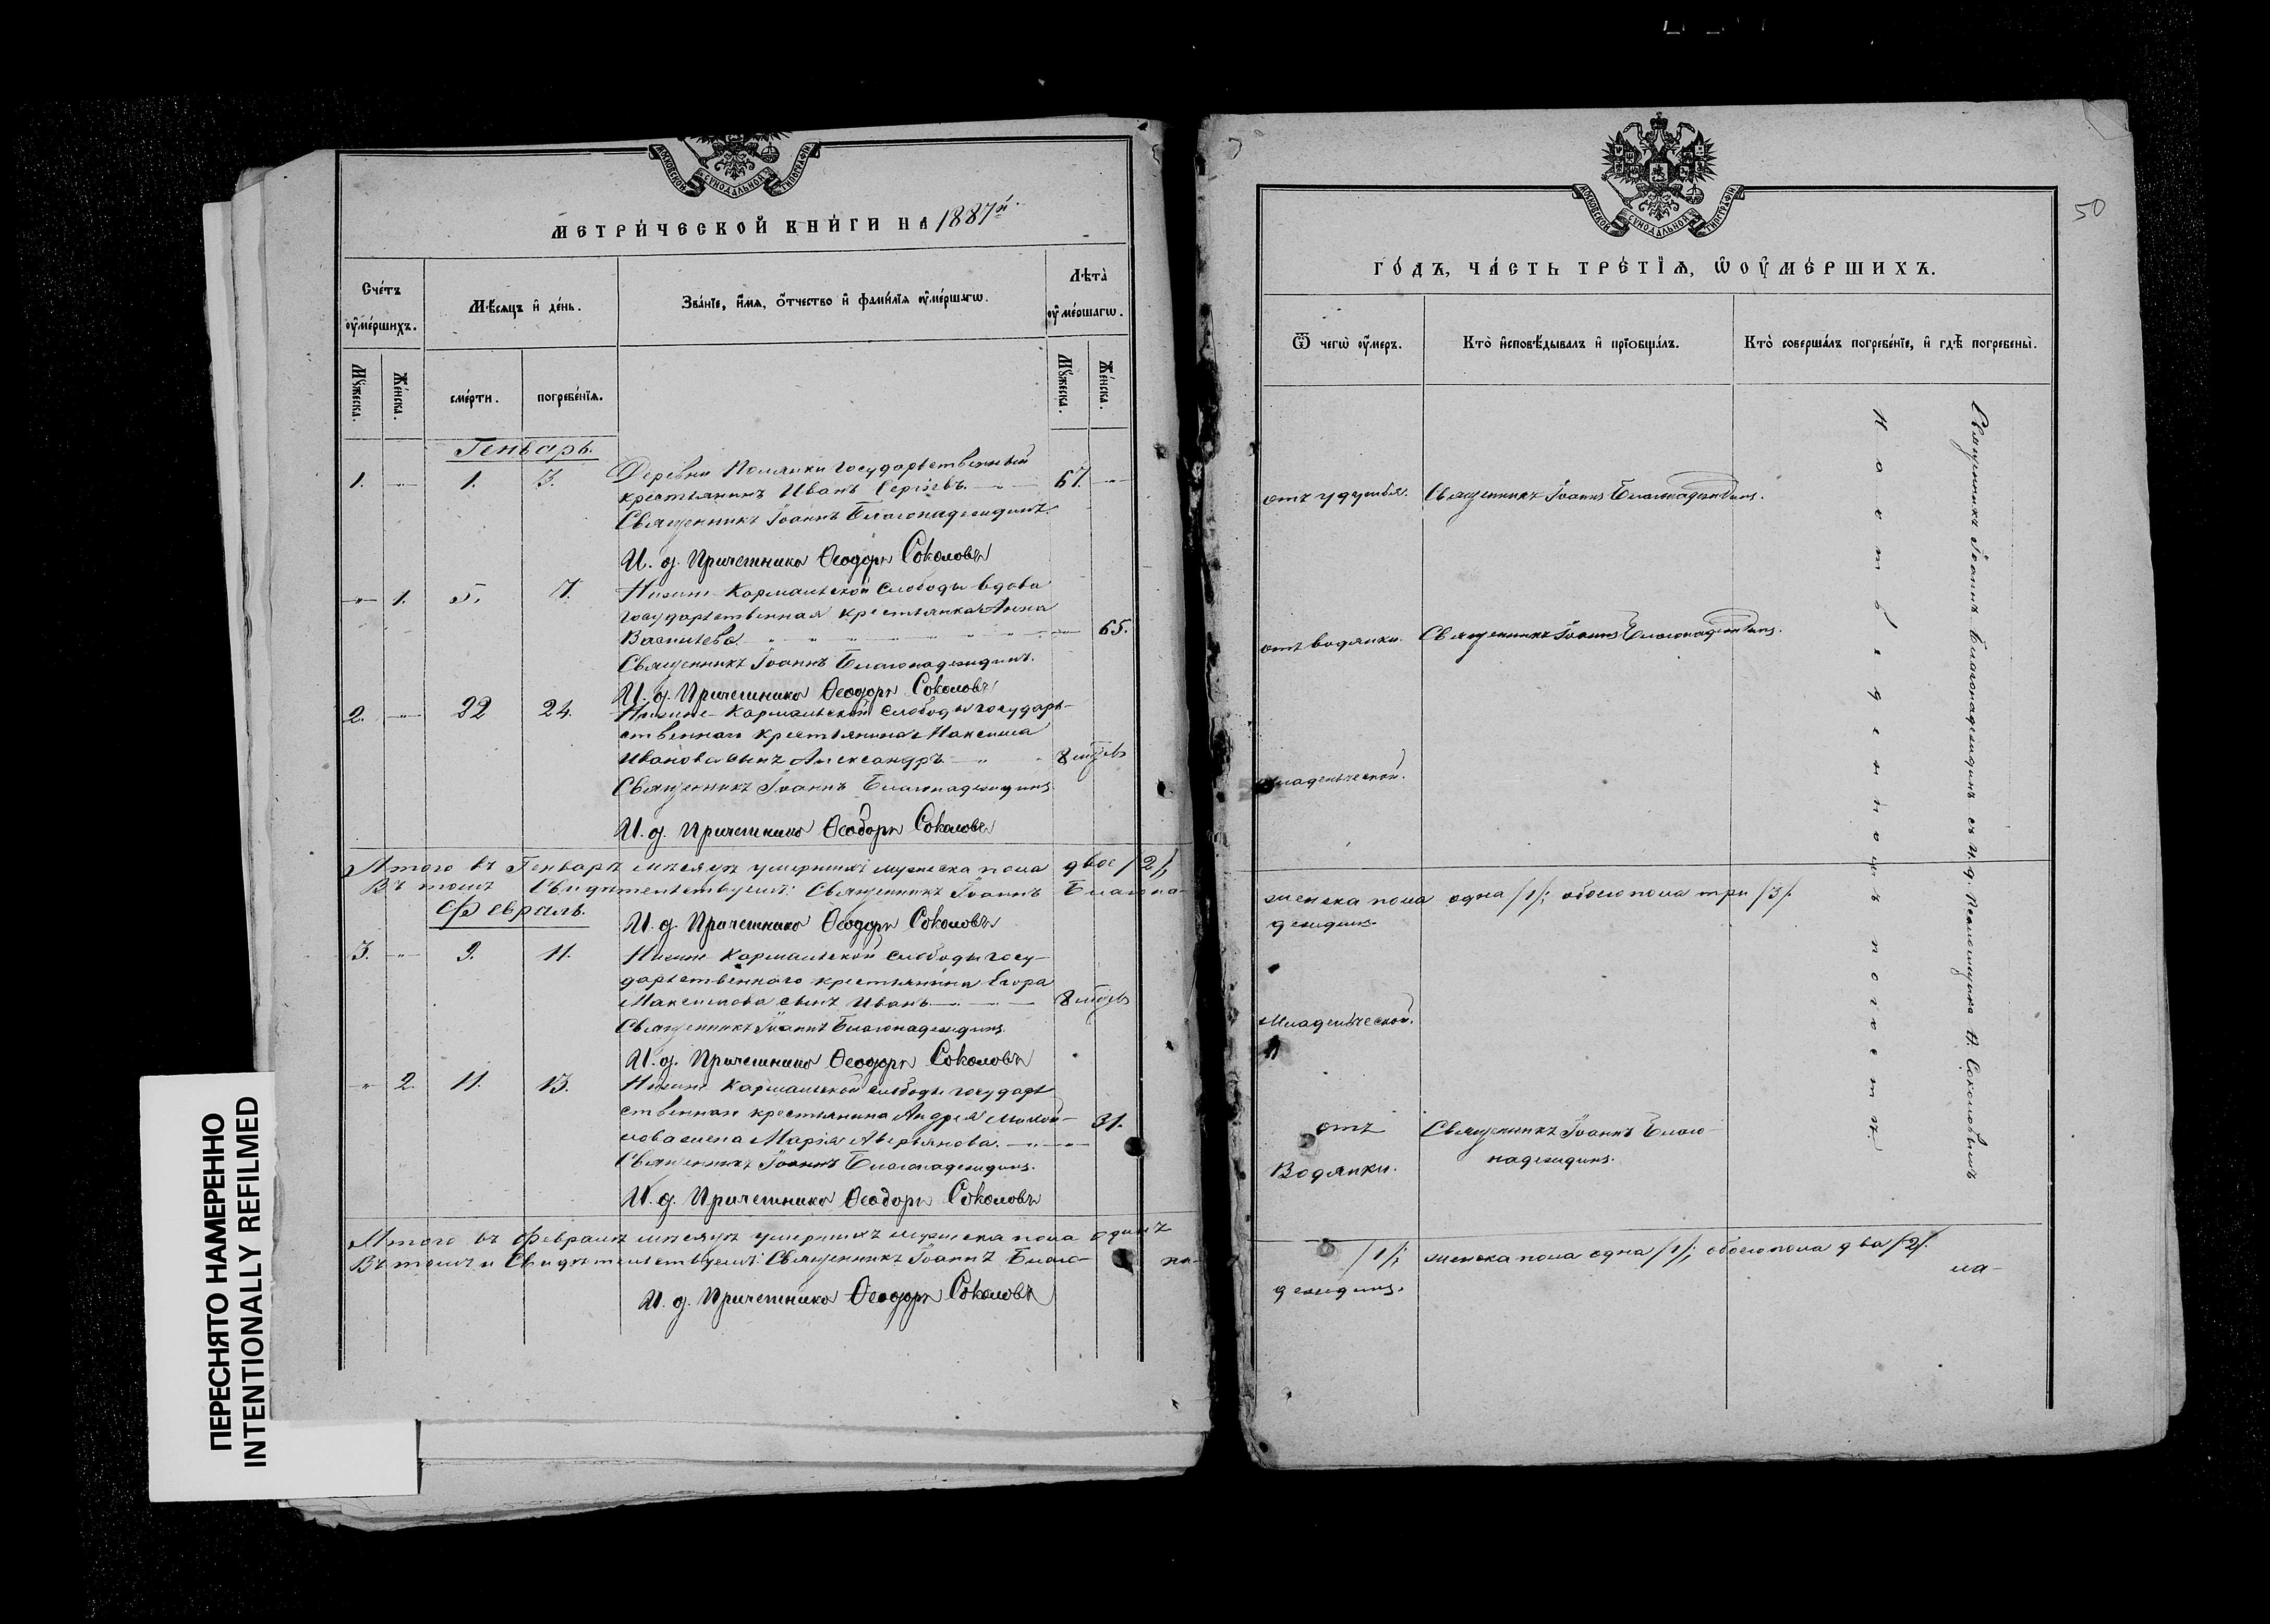 МОСКОВСКОЙ СУНОДАЛЬНОЙ ТИПОГРАФІИ
МЕТРИ́ЧЕСКОЙ КНИ́ГИ НА 1887й
Сче́тъ оу҆ме́ршихъ.
Мѣ́сяцъ и҆ де́нь.
Зва́нїе, и҆́мя, ѻ҆́тчество и҆ фами́лїя оу҆ме́ршагѡ.
Лѣ́та оу҆ме́ршагѡ.
Мꙋ́жеска.
Же́нска.
сме́рти.
погребе́нїя.
Мꙋ́жеска.
Же́нска.
Генварь.
1. -„- 1. 3. Деревни Полянки государственный
крестьянинъ Иванъ Сергѣевъ. -„- 67. -„-
Священникъ Іоаннъ Благонадеждинъ.
И. д. Причетника Ѳеодоръ Соколовъ
-„- 1. 5. 7. Нижне-Кармальской слободы вдова
государственная крестьянка Анна
Васильева. -„- 65.
Священникъ Іоаннъ Благонадеждинъ.
И. д. Причетника Ѳеодоръ Соколовъ
2. -„- 22 24. Нижне-Кармальской слободы государ-
ственнаго крестьянина Максима
Иванова сынъ Александръ -„- 8 мцевъ
Священникъ Іоаннъ Благонадеждинъ
И. д. Причетника Ѳеодоръ Соколовъ
Итого въ Генварѣ мѣсяцѣ умершихъ мужеска пола двое /2/,
Въ томъ Свидѣтельствуемъ: Священникъ Іоаннъ Благона-
Февраль.
И. д. Причетника Ѳеодоръ Соколовъ
3. -„- 9. 11. Нижне-Кармальской слободы госу-
дарственнаго крестьянина Егора
Максимова сынъ Иванъ -„- 8 мцевъ
Священникъ Іоаннъ Благонадеждинъ.
И. д. Причетника Ѳеодоръ Соколовъ
-„- 2. 11. 13. Нижне-Кармальской слободы государ-
ственнаго крестьянина Андрея Михай-
лова жена Марія Аверьянова. -„- 31.
Священникъ Іоаннъ Благонадеждинъ.
И. д. Причетника Ѳеодоръ Соколовъ
Итого въ Февралѣ мѣсяцѣ умершихъ мужеска пола одинъ
Въ томъ и Свидѣтельствуемъ: Священникъ Іоаннъ Благо- на-
И. д. Причетника Ѳеодоръ Соколовъ
МОСКОВСКОЙ СУНОДАЛЬНОЙ ТИПОГРАФІИ
50
ГО́ДЪ, ЧА́СТЬ ТРЕ́ТЇѦ, Ѽ ОУ҆МЕ́РШИХЪ.
Ѿ чегѡ̀ оу҆́меръ.
Кто̀ и҆сповѣ́дывалъ и҆ прїобща́лъ.
Кто̀ соверша́лъ погребе́нїе, и҆ гдѣ̀ погребены̀.
отъ удушья.
Священникъ Іоаннъ Благонадеждинъ.
отъ водянки.
Священникъ Іоаннъ Благонадеждинъ.
младенческой.
женска пола одна /1/; обоего пола три /3/.
деждинъ.
Младенческой.
отъ
Водянки.
Священникъ Іоаннъ Благо-
надеждинъ.
/1/; женска пола одна /1/; обоего пола два /2/.
на-
деждинъ.
Священникъ Іоаннъ Благонадеждинъ съ И. д. Псаломщика Ѳ. Соколовымъ
ПЕРЕСНЯТО НАМЕРЕННО
INTENTIONALLY REFILMED